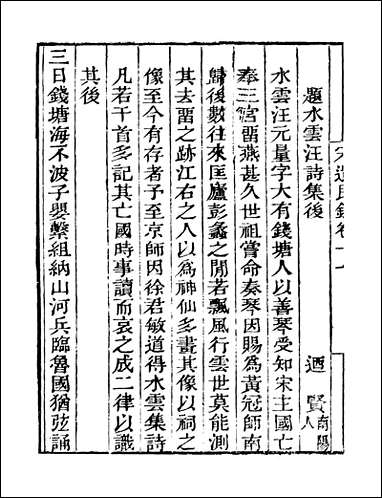 宋遺民錄卷十一
題水雲汪詩集後
迺 賢 南陽人
水雲汪元量字大有錢塘人以善琴受知宋主國亡
奉三宮留燕甚久世祖嘗命奏琴因賜為黃冠師南
歸後數往來匡廬彭蠡之間若飄風行雲世莫能測
其去畱之跡江右之人以為神仙多畫其像以祠之
像至今有存者予至京師因徐君敏道得水雲集詩
凡若干首多記其亡國時事讀而哀之成二律以識
其後
三日錢塘海不波子嬰繫組納山河兵臨魯國猶弦誦